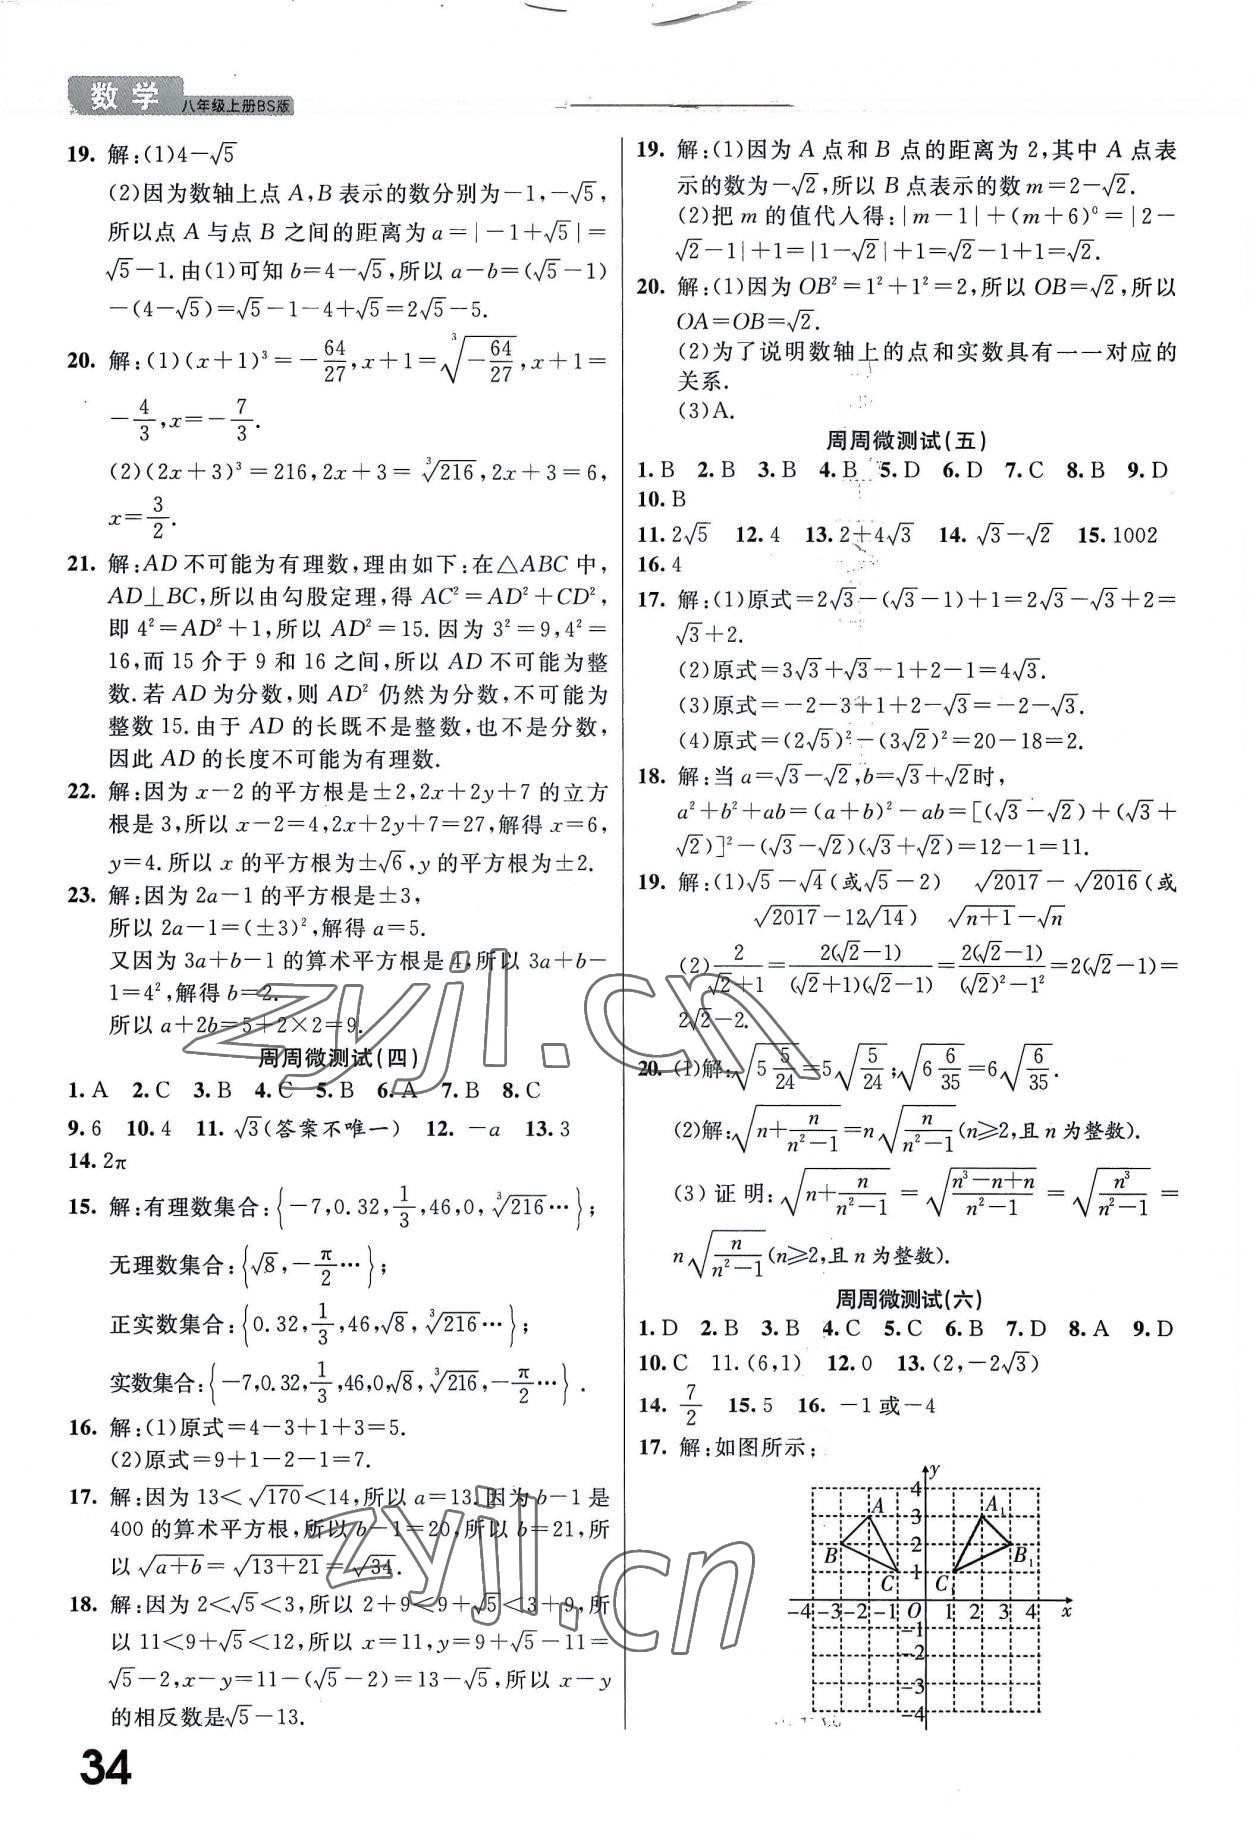 数学 八年级上册BS版
19. 解:(1)4-√5
(2)因为数轴上点 A,B 表示的数分别为-1,-√5,
所以点 A 与点 B 之间的距离为 a=|-1+√5|=
√5-1.由(1)可知 b=4-√5,所以 a-b=(√5-1)
-(4-√5)=√5-1-4+√5=2√5-5.
20. 解:(1)(x+1)³=-64/27,x+1=∛(-64/27),x+1=
-4/3,x=-7/3.
(2)(2x+3)³=216,2x+3=∛216,2x+3=6,
x=3/2.
21. 解:AD 不可能为有理数,理由如下:在△ABC 中,
AD⊥BC,所以由勾股定理,得 AC²=AD²+CD²,
即 4²=AD²+1,所以 AD²=15.因为 3²=9,4²=
16,而 15 介于 9 和 16 之间,所以 AD 不可能为整
数.若 AD 为分数,则 AD² 仍然为分数,不可能为
整数 15.由于 AD 的长既不是整数,也不是分数,
因此 AD 的长度不可能为有理数.
22. 解:因为 x-2 的平方根是±2,2x+2y+7 的立方
根是 3,所以 x-2=4,2x+2y+7=27,解得 x=6,
y=4.所以 x 的平方根为±√6,y 的平方根为±2.
23. 解:因为 2a-1 的平方根是±3,
所以 2a-1=(±3)²,解得 a=5.
又因为 3a+b-1 的算术平方根是 4,所以 3a+b-
1=4²,解得 b=2.
所以 a+2b=5+2×2=9.
周周微测试(四)
1. A 2. C 3. B 4. C 5. B 6. A 7. B 8. C
9. 6 10. 4 11. √3(答案不唯一) 12. -a 13. 3
14. 2π
15. 解:有理数集合:{-7,0.32,1/3,46,0,∛216…};
无理数集合:{√8,-π/2…};
正实数集合:{0.32,1/3,46,√8,∛216…};
实数集合:{-7,0.32,1/3,46,0,√8,∛216,-π/2…}.
16. 解:(1)原式=4-3+1+3=5.
(2)原式=9+1-2-1=7.
17. 解:因为 13<√170<14,所以 a=13.因为 b-1 是
400 的算术平方根,所以 b-1=20,所以 b=21,所
以√(a+b)=√(13+21)=√34.
18. 解:因为 2<√5<3,所以 2+9<9+√5<3+9,所
以 11<9+√5<12,所以 x=11,y=9+√5-11=
√5-2,x-y=11-(√5-2)=13-√5,所以 x-y
的相反数是√5-13.
34
19. 解:(1)因为 A 点和 B 点的距离为 2,其中 A 点表
示的数为-√2,所以 B 点表示的数 m=2-√2.
(2)把 m 的值代入得:|m-1|+(m+6)⁰=|2-
√2-1|+1=|1-√2|+1=√2-1+1=√2.
20. 解:(1)因为 OB²=1²+1²=2,所以 OB=√2,所以
OA=OB=√2.
(2)为了说明数轴上的点和实数具有一一对应的
关系.
(3)A.
周周微测试(五)
1. B 2. B 3. B 4. B 5. D 6. D 7. C 8. B 9. D
10. B
11. 2√5 12. 4 13. 2+4√3 14. √3-√2 15. 1002
16. 4
17. 解:(1)原式=2√3-(√3-1)+1=2√3-√3+2=
√3+2.
(2)原式=3√3+√3-1+2-1=4√3.
(3)原式=-2-3+1+2-√3=-2-√3.
(4)原式=(2√5)²-(3√2)²=20-18=2.
18. 解:当 a=√3-√2,b=√3+√2时,
a²+b²+ab=(a+b)²-ab=[(√3-√2)+(√3+
√2)]²-(√3-√2)(√3+√2)=12-1=11.
19. 解:(1)√5-√4(或√5-2) √2017-√2016(或
√2017-12√14) √(n+1)-√n
(2)2/(√2+1)=2(√2-1)/((√2+1)(√2-1))=2(√2-1)/((√2)²-1²)=2(√2-1)=
2√2-2.
20. (1)解:√(5 5/24)=5√(5/24);√(6 6/35)=6√(6/35).
(2)解:√(n+n/(n²-1))=n√(n/(n²-1))(n≥2,且 n 为整数).
(3)证明:√(n+n/(n²-1))=√((n³-n+n)/(n²-1))=√(n³/(n²-1))=
n√(n/(n²-1))(n≥2,且 n 为整数).
周周微测试(六)
1. D 2. B 3. B 4. C 5. C 6. B 7. D 8. A 9. D
10. C 11. (6,1) 12. 0 13. (2,-2√3)
14. 7/2 15. 5 16. -1或-4
17. 解:如图所示;
y
4
A 3 A₁
B 2 B₁
C 1 C₁
-4 -3 -2 -1 O 1 2 3 4 x
-1
-2
-3
-4
zyjl.cn
zyjl.cn